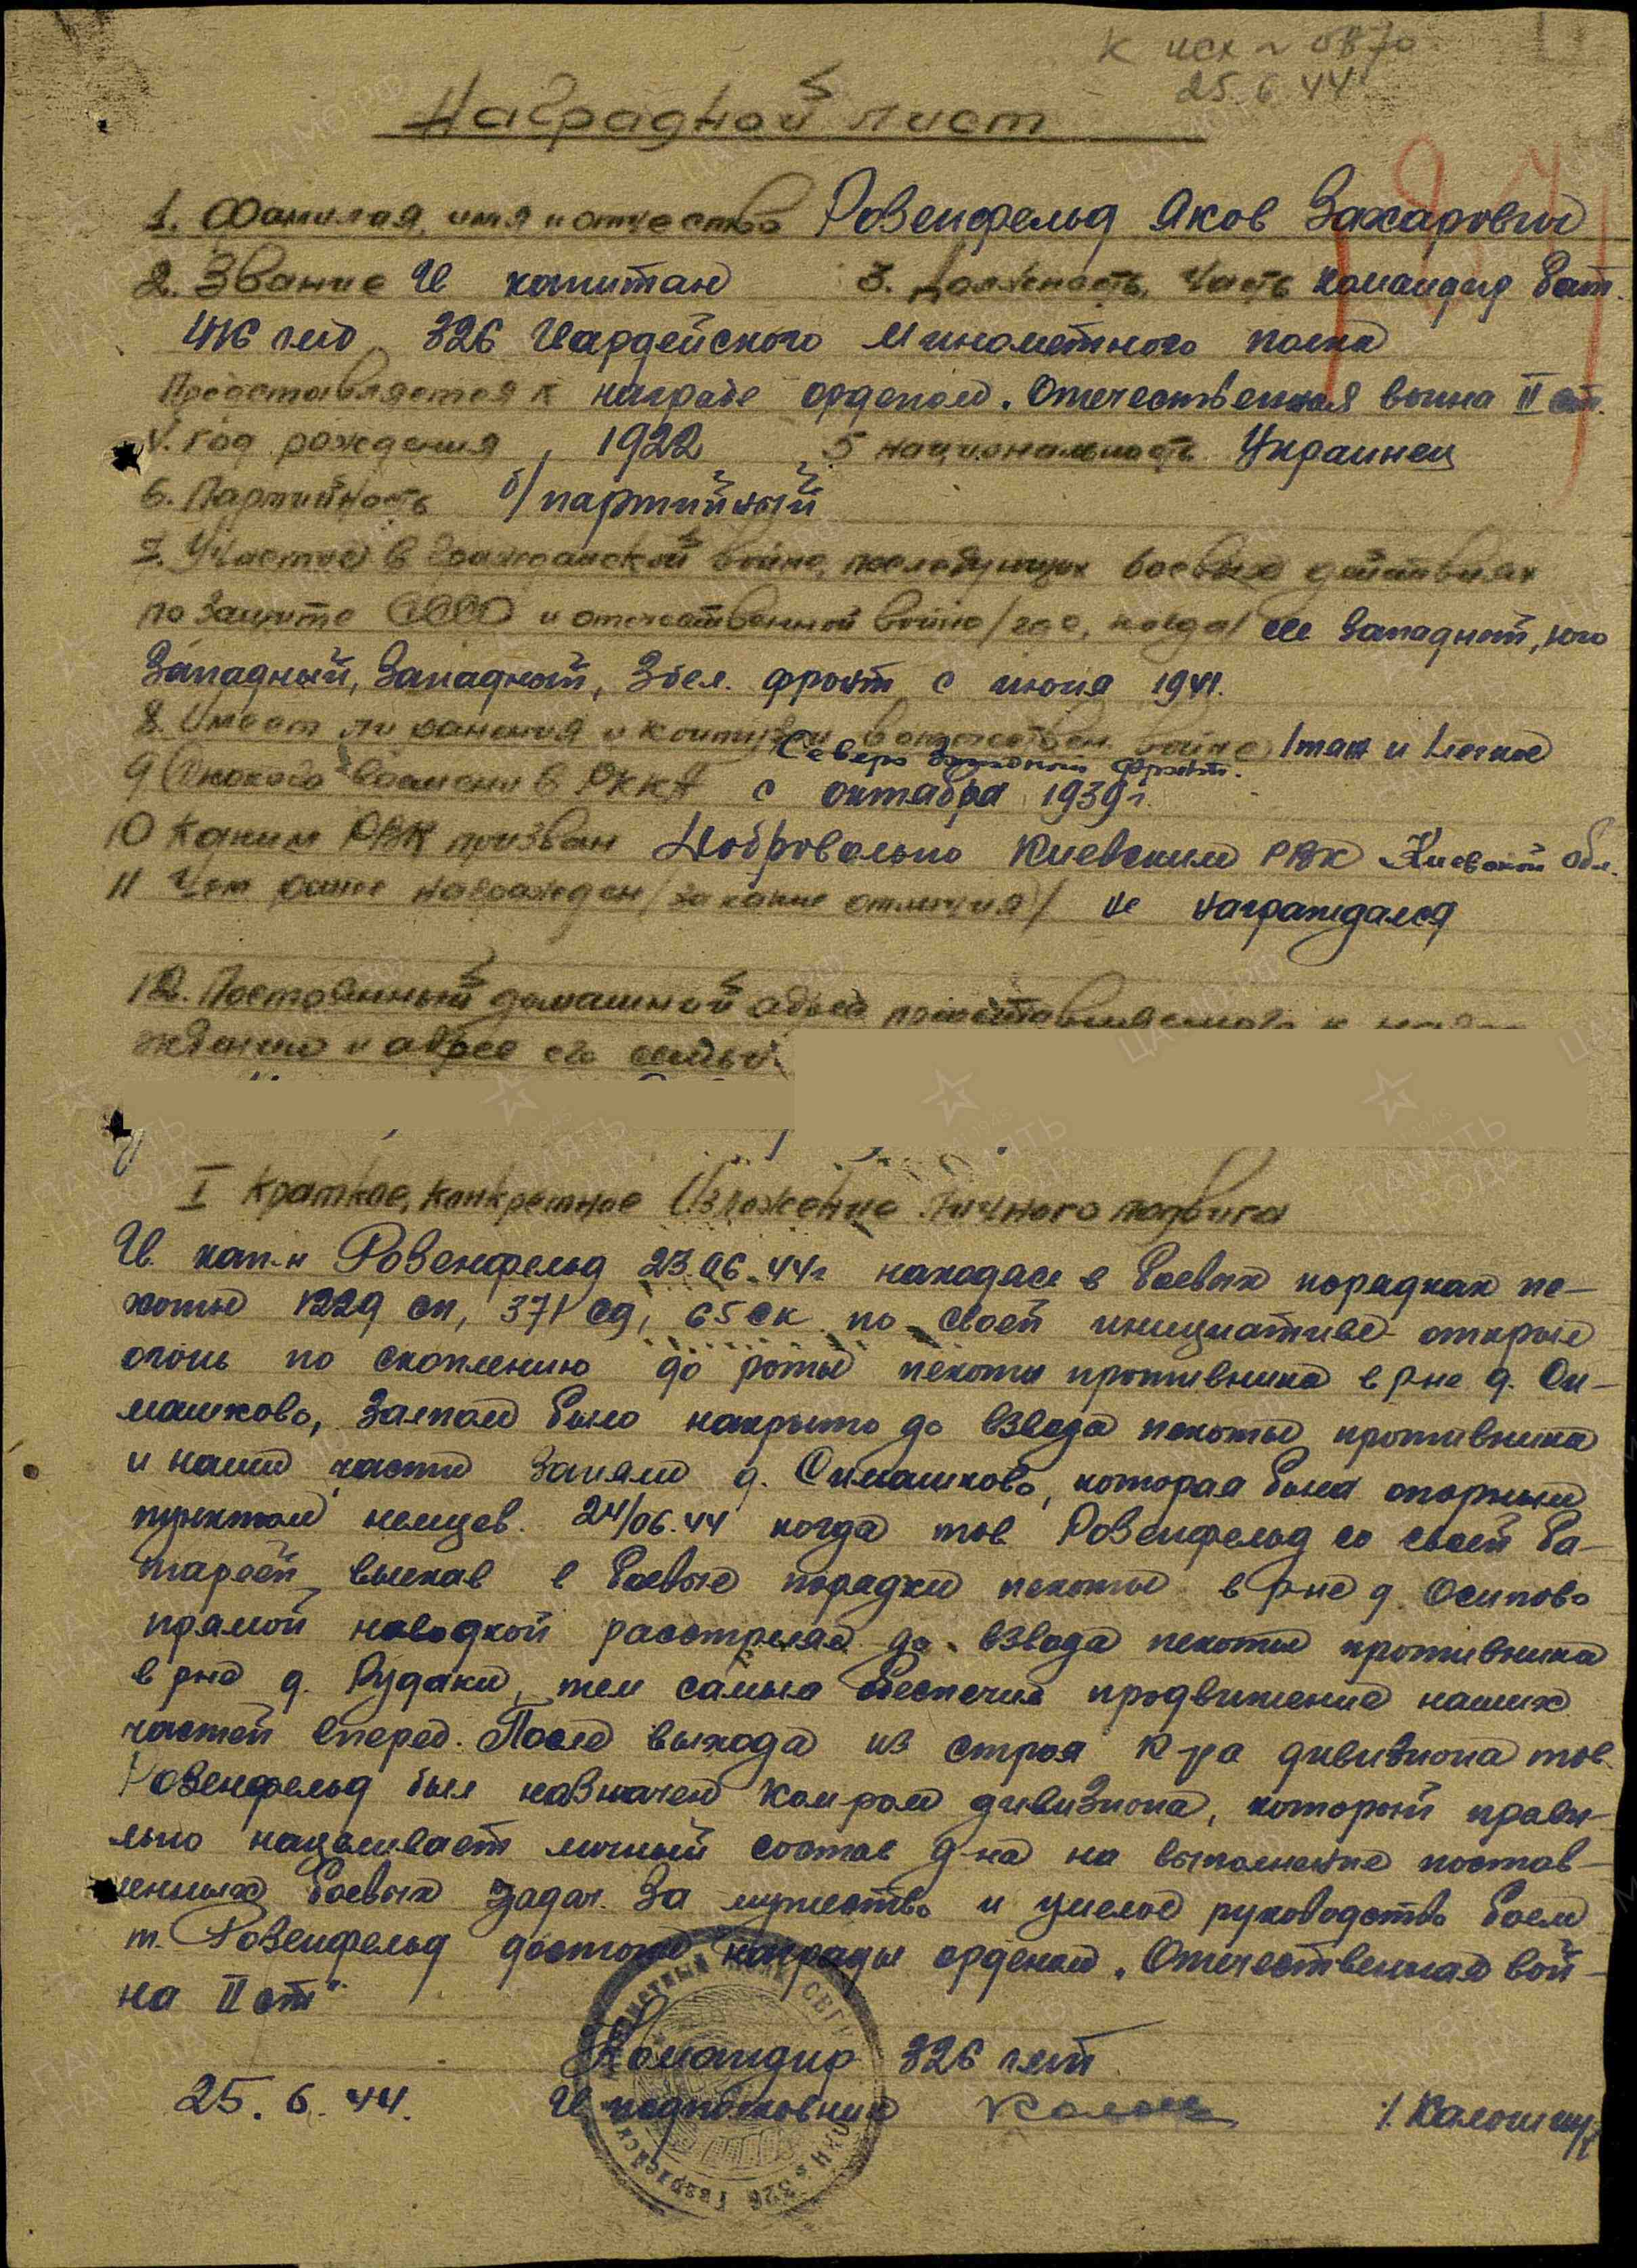 К исх № 0870
25.6.44
Наградной лист
1. Фамилия, имя и отчество Розенфельд Яков Захарович
2. Звание Гв капитан 3. Должность, часть командир бат.
416 гмд 326 Гвардейского Минометного полка
Представляется к награде орденом „Отечественная война II ст.
4. год рождения 1922 5 национальность Украинец
6. Партийность б/партийный
7. Участие в гражданской войне, последующих боевых действиях
по защите СССР и отечественной войне /где, когда/ Западный, юго
Западный, Западный, 3 бел. фронт с июня 1941.
8. Имеет ли ранения и контузии в отечествен. войне 1 тяж и 1 легкое
Северо Западный фронт.
9 С какого времени в РККА с октября 1939 г.
10 Каким РВК призван Добровольно Киевским РВК Киевской обл.
11 Чем ранее награжден /за какие отличия/ не награждался
12. Постоянный домашний адрес представляемого к награ
ждению и адрес его семьи.
I Краткое, конкретное изложение личного подвига
Гв. кап-н Розенфельд 23.06.44г находясь в боевых порядках пе-
хоты 1229 сп, 371 сд, 65 ск по своей инициативе открыл
огонь по скоплению до роты пехоты противника в р-не д. Си-
машково, залпом было накрыто до взвода пехоты противника
и наши части заняли д. Симашково, которая была опорным
пунктом немцев. 24/06.44 когда тов Розенфельд со своей ба-
тареей выехав в боевые порядки пехоты в р-не д. Осипово
прямой наводкой расстрелял до взвода пехоты противника
в р-не д. Рудаки, тем самым обеспечив продвижение наших
частей вперед. После выхода из строя к-ра дивизиона тов.
Розенфельд был назначен ком-ром дивизиона, который прави-
льно нацеливает личный состав д-на на выполнение постав-
ленных боевых задач. За мужество и умелое руководство боем
т. Розенфельд достоин награды орденом „Отечественная вой-
на II ст"
Командир 326 гмп
25.6.44. Гв подполковник /Калошин/